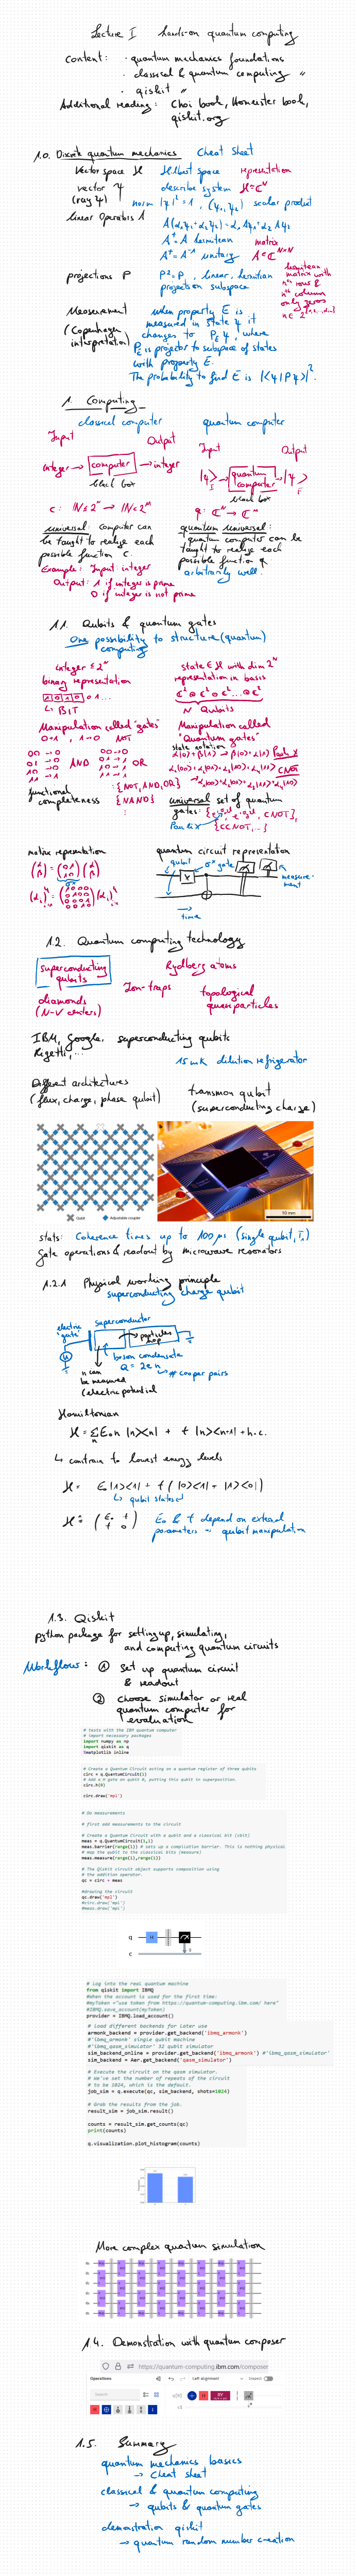 Lecture I hands-on quantum computing
Content: · quantum mechanics foundations
· classical & quantum computing "
· qiskit "
Additional reading: Choi book, Homeister book,
qiskit.org
1.0. Discrete quantum mechanics Cheat Sheet
Vector space ℋ Hilbert space representation
vector ψ describe system ℋ≅ℂᴺ
(ray ψ) norm |ψ|² = 1, (ψ₁,ψ₂) scalar product
linear operators A A(α₁ψ₁+α₂ψ₂) = α₁Aψ₁+α₂Aψ₂
A⁺ = A hermitean matrix
A⁺ = A⁻¹ unitary A∈ℂᴺˣᴺ
projections P P² = P, linear, hermitian
projection subspace
hermitean
matrix with
nᵗʰ rows &
nᵗʰ column
only zeros
Measurement When property E is
measured in state ψ it
(Copenhagen changes to P_E ψ, where
interpretation) P_E is projector to subspace of states
with property E.
The probability to find E is |⟨ψ|Pψ⟩|².
1. Computing
classical computer quantum computer
Input Output Input Output
integer → computer → integer |ψ⟩_I → quantum computer → |ψ⟩_F
black box black box
c: ℕ≤2ᴺ → ℕ<2ᴹ q: ℂᴺ → ℂᴺ
universal: computer can
be taught to realize each
possible function c.
Example: Input integer
Output: 1 if integer is prime
0 if integer is not prime
quantum universal:
quantum computer can be
taught to realize each
possible function q
arbitrarily well.
1.1. Qubits & quantum gates
One possibility to structure (quantum)
computing
integer ≤ 2ᴺ
binary representation
1 0 1 0 0 1 ...
↳ BIT
state ∈ ℋ with dim 2ᴺ
representation in basis
ℂ²⊗ℂ²⊗ℂ²...⊗ℂ²
N Qubits
Manipulation called "gates"
0→1, 1→0 NOT
AND
OR
Manipulation called
"Quantum gates"
state notation
α|0⟩+β|1⟩ → β|0⟩+α|1⟩ Pauli X
CNOT
functional
completeness
: {NOT, AND, OR}
{NAND}
universal set of quantum
gates:
Pauli X
{CCNOT, ...}
matrix representation
quantum circuit representation
qubit
X
σˣ gate
measurement
time
1.2. Quantum computing technology
superconducting
qubits
Rydberg atoms
Ion-traps
diamonds
(N-V centers)
topological
quasiparticles
IBM, Google, superconducting qubits
Rigetti, ...
15 mK dilution refrigerator
Different architectures
(flux, charge, phase qubit)
transmon qubit
(superconducting charge)
Qubit
Adjustable coupler
10 mm
stats: Coherence times up to 100 μs (single qubit, T₁)
Gate operations & readout by microwave resonators
1.2.1 Physical working principle
superconducting charge qubit
electric
"gate"
superconductor
particles
hop
boson condensate
Q = 2en
# cooper pairs
n can
be measured
(electric potential
Hamiltonian
ℋ = Σ_n E_0 n |n⟩⟨n| + t |n⟩⟨n+1| + h.c.
↳ constrain to lowest energy levels
ℋ = E₀|1⟩⟨1| + t(|0⟩⟨1| + |1⟩⟨0|)
↳ qubit states
E₀ & t depend on external
parameters → qubit manipulation
1.3. Qiskit
python package for setting up, simulating,
and computing quantum circuits
Workflow: ① Set up quantum circuit
& readout
② choose simulator or real
quantum computer for
evaluation
# tests with the IBM quantum computer
# import necessary packages
import numpy as np
import qiskit as q
%matplotlib inline
# Create a Quantum Circuit acting on a quantum register of three qubits
circ = q.QuantumCircuit(1)
# Add a H gate on qubit 0, putting this qubit in superposition.
circ.h(0)
circ.draw('mpl')
# Do measurements
# first add measurements to the circuit
# Create a Quantum Circuit with a qubit and a classical bit (cbit)
meas = q.QuantumCircuit(1,1)
meas.barrier(range(1)) # sets up a compilation barrier. This is nothing physical
# map the qubit to the classical bits (measure)
meas.measure(range(1),range(1))
# The Qiskit circuit object supports composition using
# the addition operator.
qc = circ + meas
#drawing the circuit
qc.draw('mpl')
#circ.draw('mpl')
#meas.draw('mpl')
q
H
c
0
# Log into the real quantum machine
from qiskit import IBMQ
#When the account is used for the first time:
#myToken ="use token from https://quantum-computing.ibm.com/ here"
#IBMQ.save_account(myToken)
provider = IBMQ.load_account()
# Load different backends for later use
armonk_backend = provider.get_backend('ibmq_armonk')
#'ibmq_armonk' single qubit machine
#'ibmq_qasm_simulator' 32 qubit simulator
sim_backend_online = provider.get_backend('ibmq_armonk') #'ibmq_qasm_simulator'
sim_backend = Aer.get_backend('qasm_simulator')
# Execute the circuit on the qasm simulator.
# We've set the number of repeats of the circuit
# to be 1024, which is the default.
job_sim = q.execute(qc, sim_backend, shots=1024)
# Grab the results from the job.
result_sim = job_sim.result()
counts = result_sim.get_counts(qc)
print(counts)
q.visualization.plot_histogram(counts)
More complex quantum simulation
1.4. Demonstration with quantum composer
https://quantum-computing.ibm.com/composer
Operations
Left alignment
Inspect
Search
H
1.5. Summary
quantum mechanics basics
→ cheat sheet
classical & quantum computing
→ qubits & quantum gates
demonstration qiskit
→ quantum random number creation